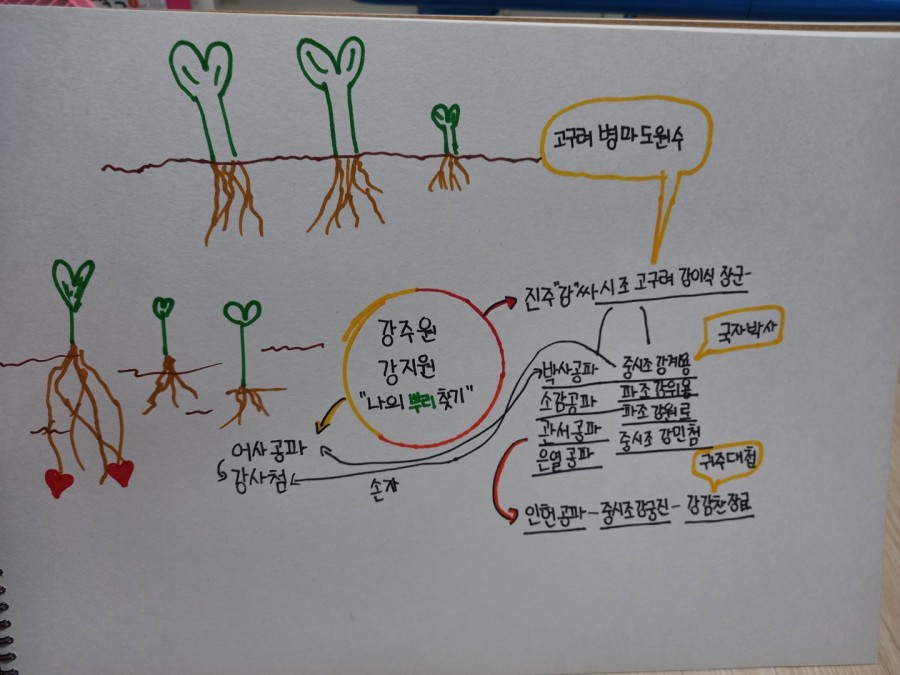 고구려 병마도원수
진주"강"씨 시조 고구려 강이식 장군
국자박사
강주원
강지원
"나의 뿌리 찾기"
박사공파 중시조 강계용
소감공파 파조 강위용
관서공파 파조 강원로
은열공파 중시조 강민첨
어사공파
강사첨
손자
귀주대첩
인헌공파 - 중시조 강궁진 - 강감찬 장군